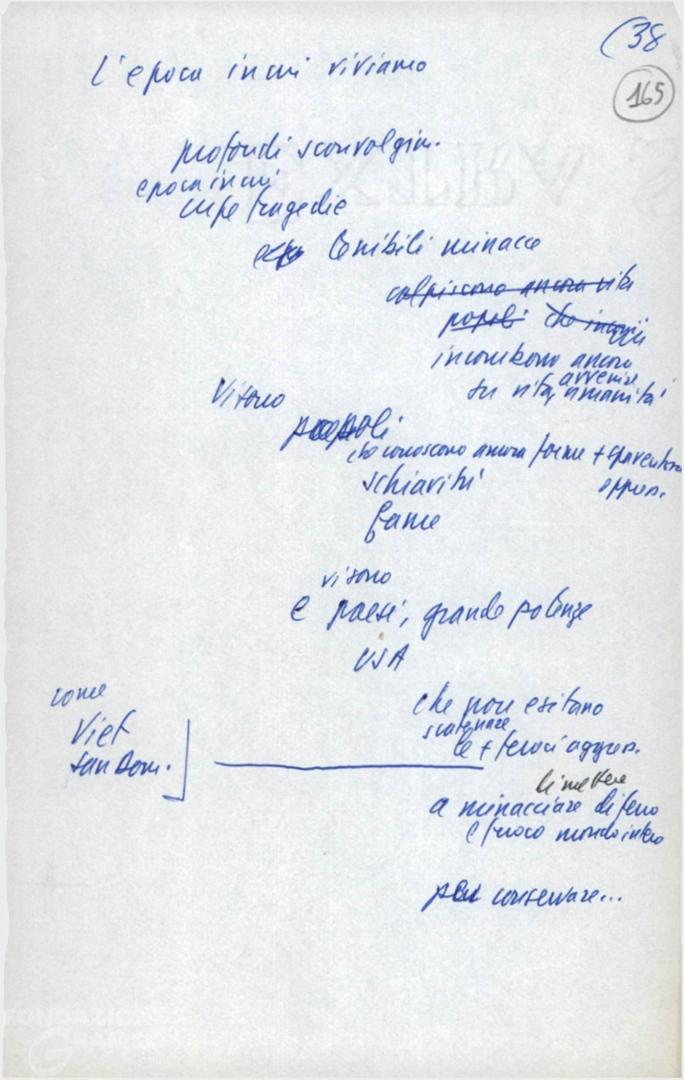 (38
165
L'epoca in cui viviamo
profondi sconvolgim.
epoca in cui
cupe tragedie
terribili minacce
colpiscono ancora vita
popoli che
incombono ancora
avvenire
su vita, umanità
Vi sono
popoli
che conoscono ancora forme + spaventose
schiavitù oppres.
fame
vi sono
e paesi, grande potenze
USA
come
che non esitano
scatenare
Viet
le + feroci aggress.
San Dom.
di mettere
a minacciare di ferro
e fuoco mondo intero
per conservare...
FONDAZIONE
GRAMSCI